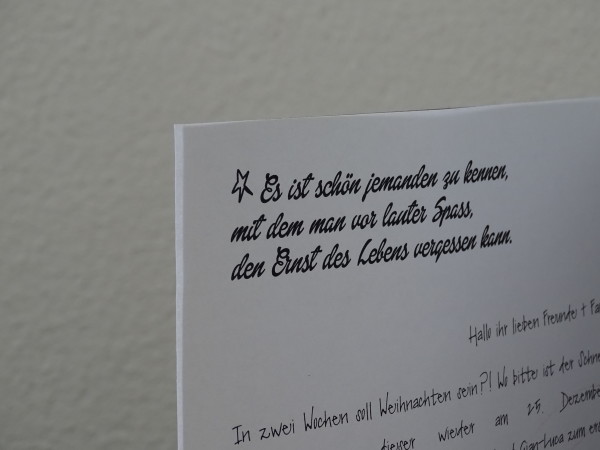 Es ist schön jemanden zu kennen,
mit dem man vor lauter Spass,
den Ernst des Lebens vergessen kann.
Hallo ihr lieben Freunde + Fa
In zwei Wochen soll Weihnachten sein?! Wo bitte ist der Schne
dieser wieder am 25. Dezembe
Gian-Luca zum ers